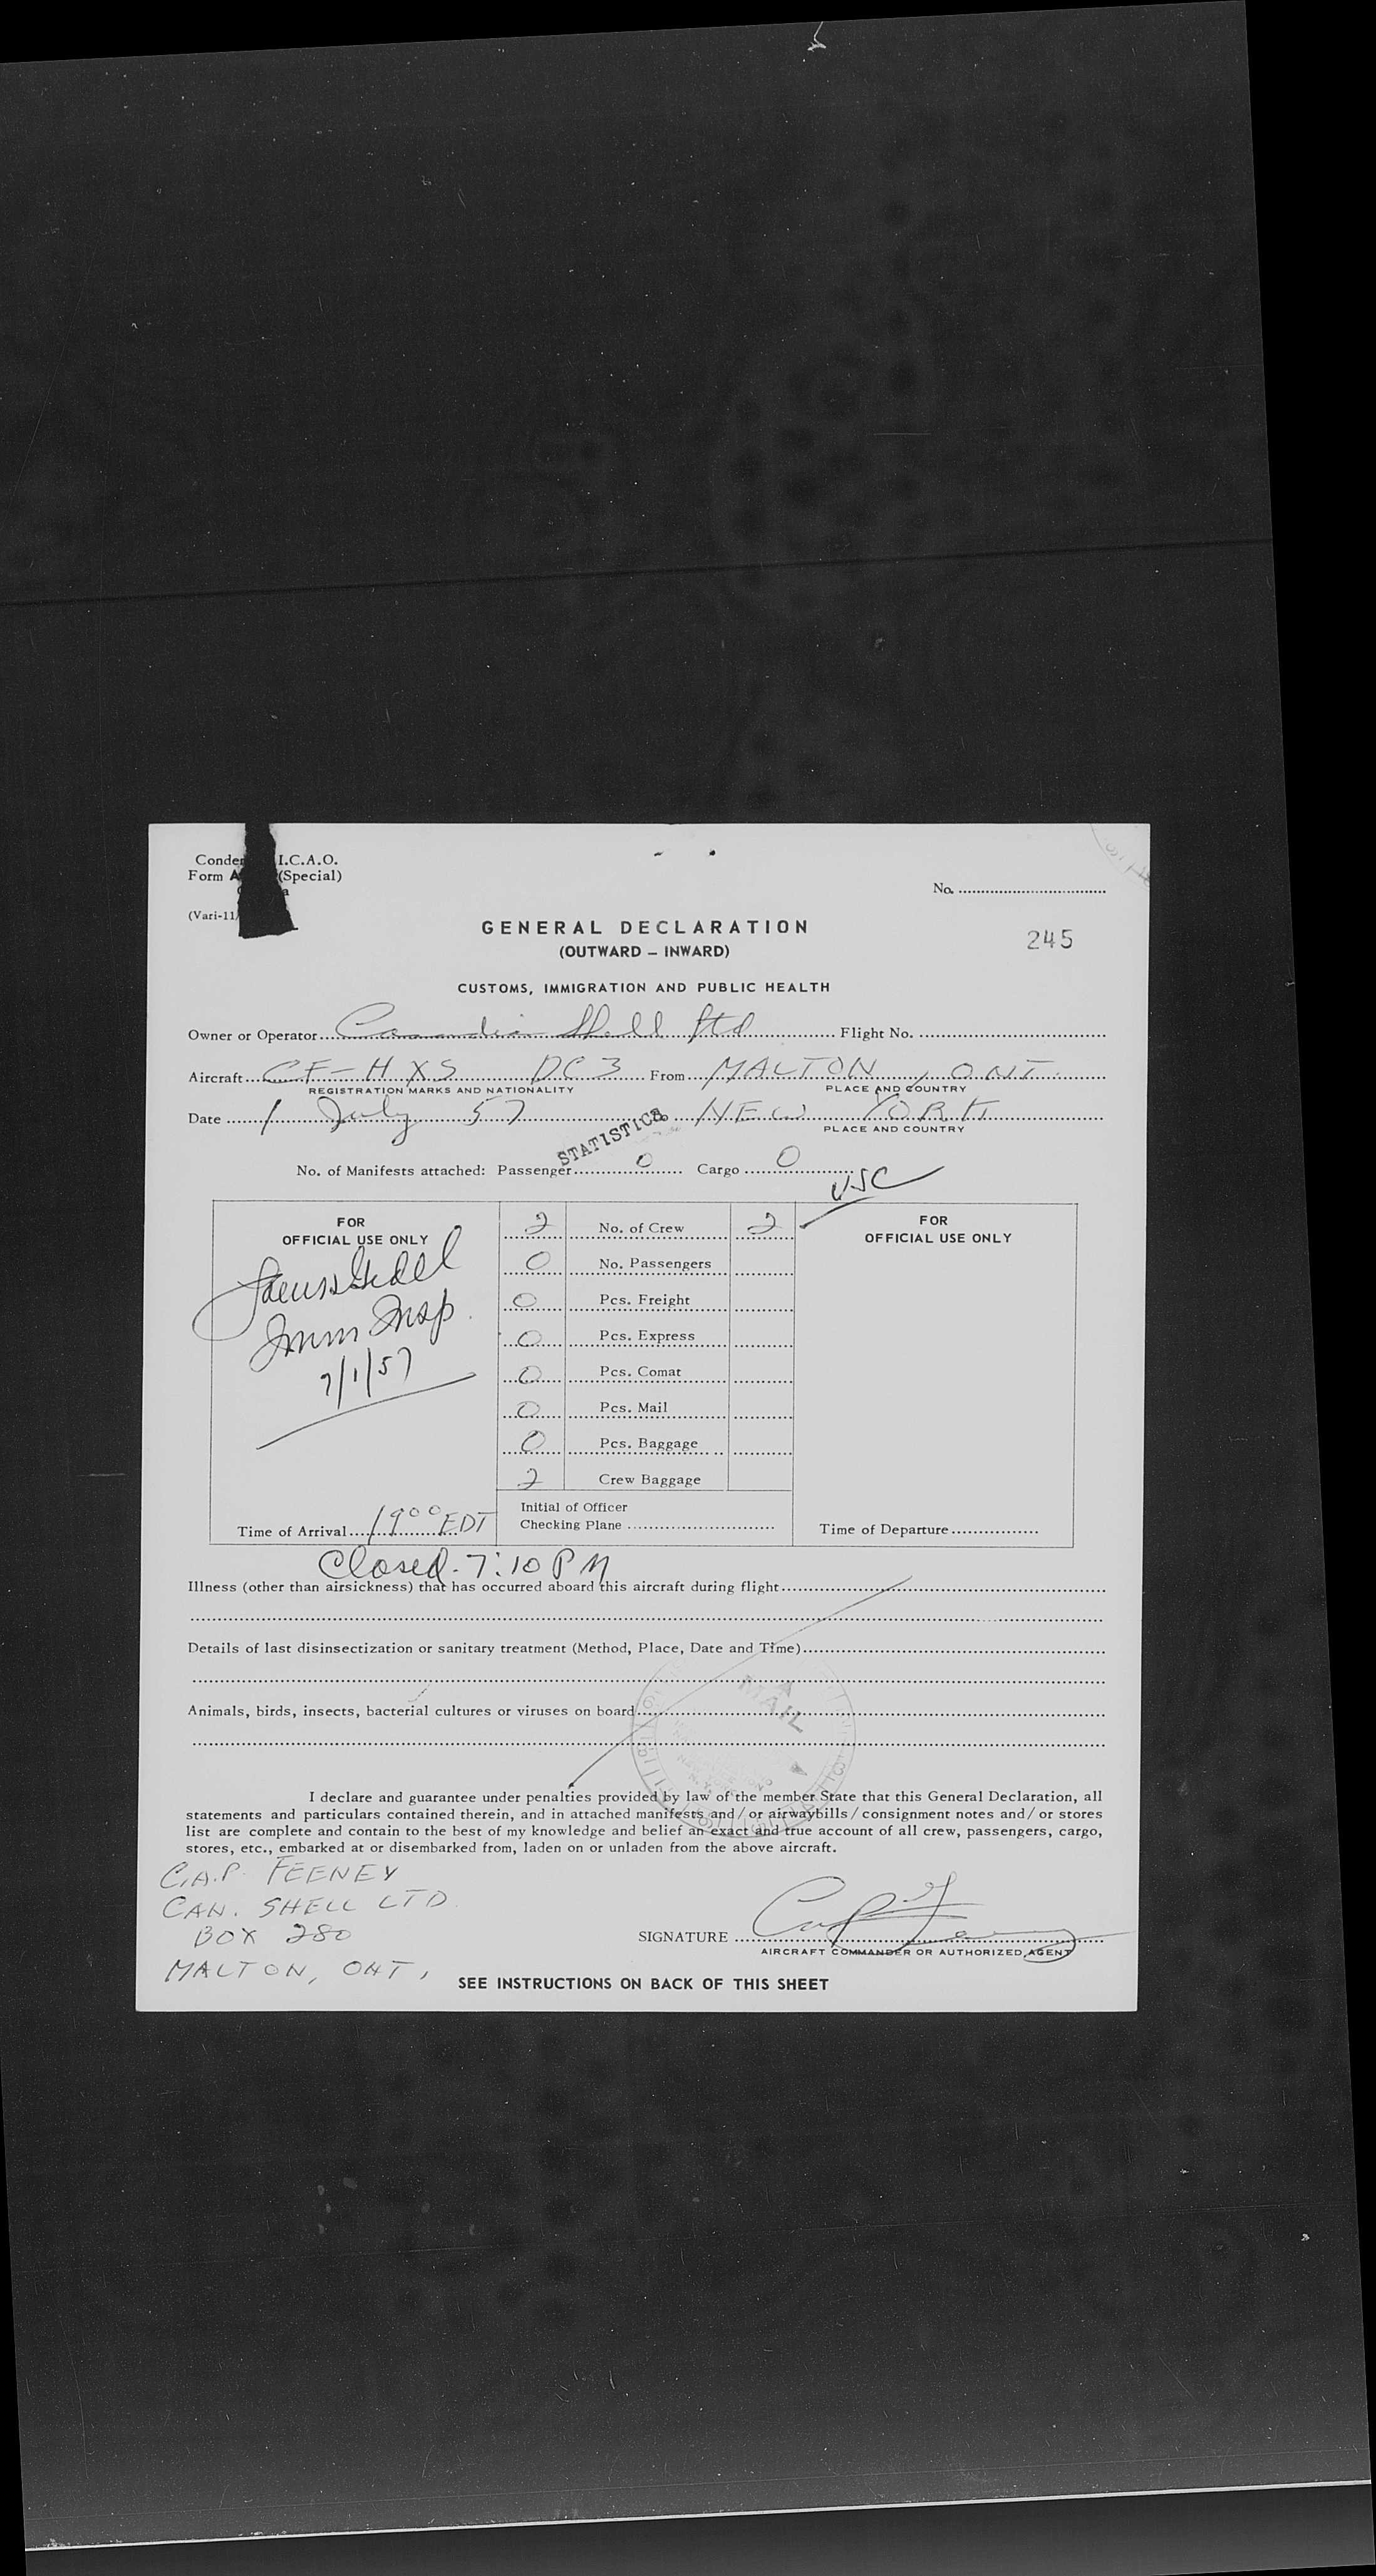 Conde I.C.A.O.
Form A (Special)
a
(Vari-11/
No.
GENERAL DECLARATION
245
(OUTWARD – INWARD)
CUSTOMS, IMMIGRATION AND PUBLIC HEALTH
Owner or Operator Canadian Shell Ltd Flight No.
Aircraft CF-HXS DC3 From MALTON, ONT.
REGISTRATION MARKS AND NATIONALITY PLACE AND COUNTRY
Date 1 July 57 NEW YORK
PLACE AND COUNTRY
STATISTICS
No. of Manifests attached: Passenger 0 Cargo 0
USC
FOR
OFFICIAL USE ONLY
Imm Insp.
7/1/57
Time of Arrival 1900 EDT
2 No. of Crew 2
0 No. Passengers
0 Pcs. Freight
0 Pcs. Express
0 Pcs. Comat
0 Pcs. Mail
0 Pcs. Baggage
2 Crew Baggage
Initial of Officer
Checking Plane
FOR
OFFICIAL USE ONLY
Time of Departure
Closed. 7:10 PM
Illness (other than airsickness) that has occurred aboard this aircraft during flight
Details of last disinsectization or sanitary treatment (Method, Place, Date and Time)
Animals, birds, insects, bacterial cultures or viruses on board
MAIL
I declare and guarantee under penalties provided by law of the member State that this General Declaration, all
statements and particulars contained therein, and in attached manifests and/or airwaybills/consignment notes and/or stores
list are complete and contain to the best of my knowledge and belief an exact and true account of all crew, passengers, cargo,
stores, etc., embarked at or disembarked from, laden on or unladen from the above aircraft.
C.A.P. FEENEY
CAN. SHELL LTD
BOX 280
MALTON, ONT,
SIGNATURE
AIRCRAFT COMMANDER OR AUTHORIZED AGENT
SEE INSTRUCTIONS ON BACK OF THIS SHEET